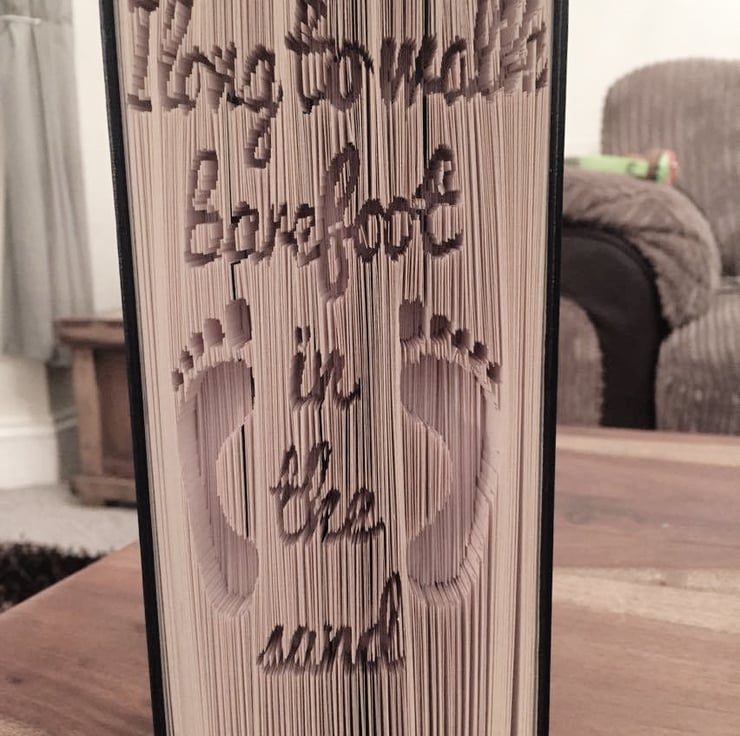 I long to walk
barefoot
in
the
sand